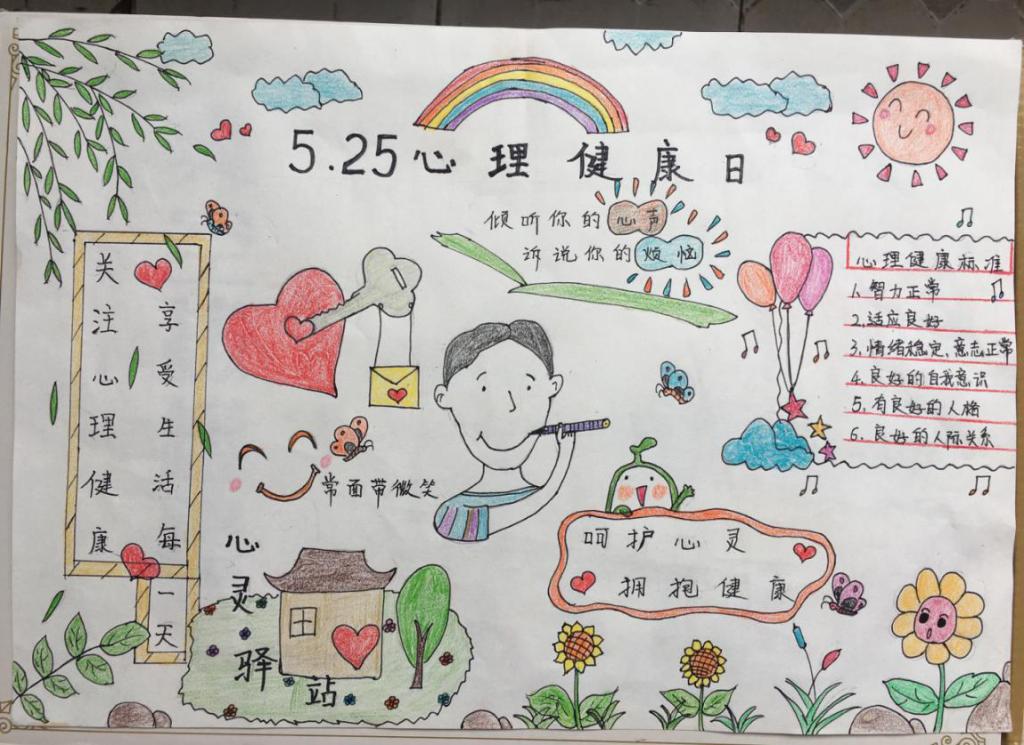 5.25心理健康日
倾听你的心声
诉说你的烦恼
关注心理健康
享受生活每一天
心理健康标准
1.智力正常
2.适应良好
3.情绪稳定,意志正常
4.良好的自我意识
5.有良好的人格
6.良好的人际关系
常面带微笑
呵护心灵
拥抱健康
心灵驿站